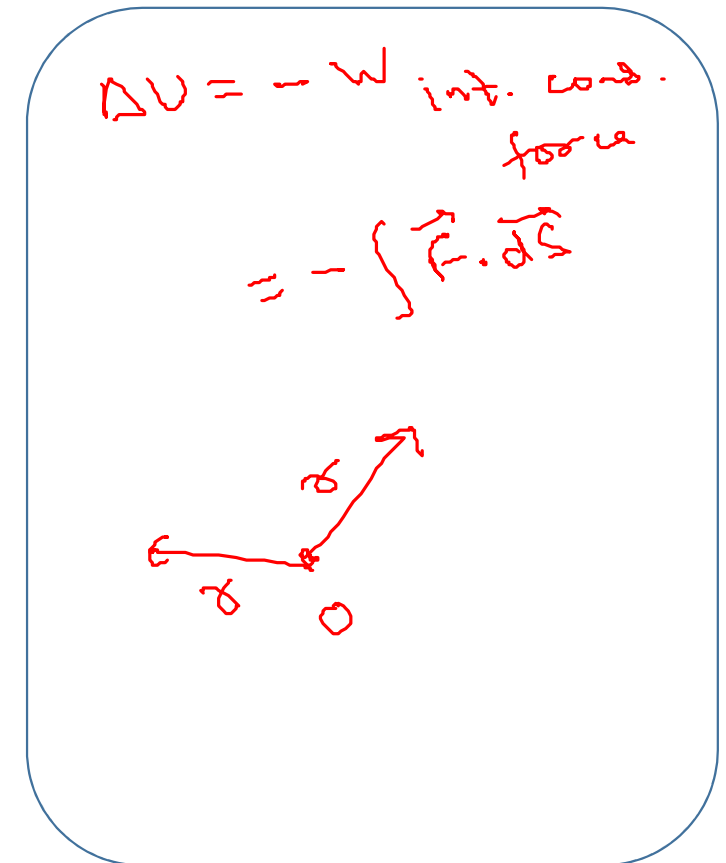 ΔU = - W int. cons.
force
= - ∫ F⃗ . dS⃗
r
r
O